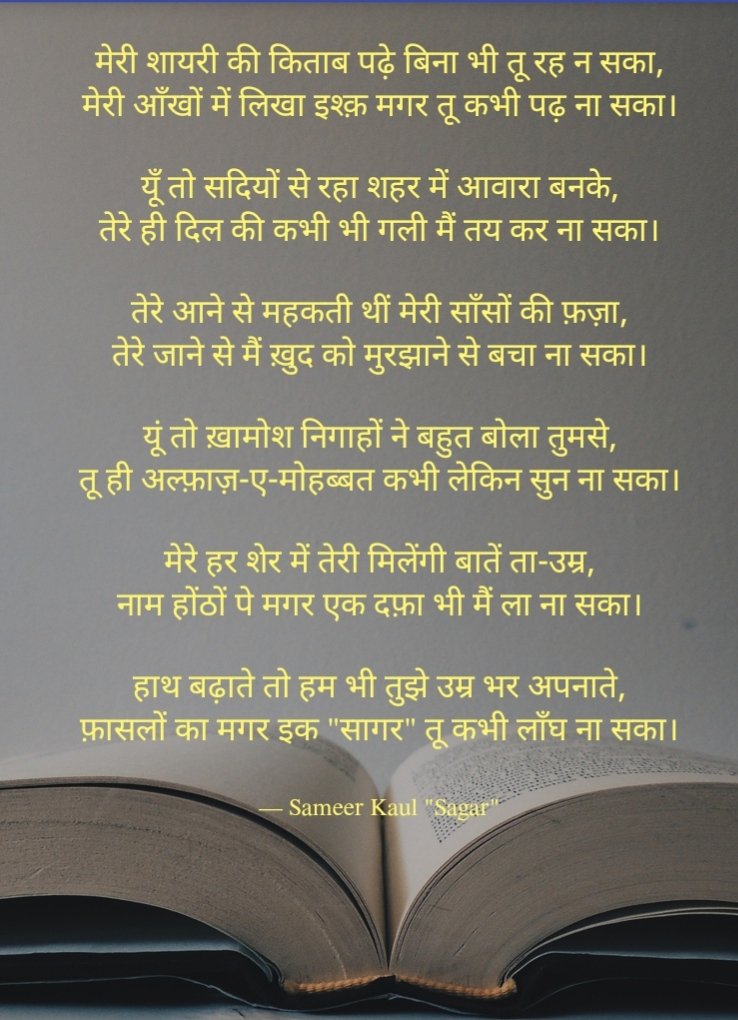 मेरी शायरी की किताब पढ़े बिना भी तू रह न सका,
मेरी आँखों में लिखा इश्क़ मगर तू कभी पढ़ ना सका।
यूँ तो सदियों से रहा शहर में आवारा बनके,
तेरे ही दिल की कभी भी गली मैं तय कर ना सका।
तेरे आने से महकती थीं मेरी साँसों की फ़ज़ा,
तेरे जाने से मैं ख़ुद को मुरझाने से बचा ना सका।
यूं तो ख़ामोश निगाहों ने बहुत बोला तुमसे,
तू ही अल्फ़ाज़-ए-मोहब्बत कभी लेकिन सुन ना सका।
मेरे हर शेर में तेरी मिलेंगी बातें ता-उम्र,
नाम होंठों पे मगर एक दफ़ा भी मैं ला ना सका।
हाथ बढ़ाते तो हम भी तुझे उम्र भर अपनाते,
फ़ासलों का मगर इक "सागर" तू कभी लाँघ ना सका।
— Sameer Kaul "Sagar"